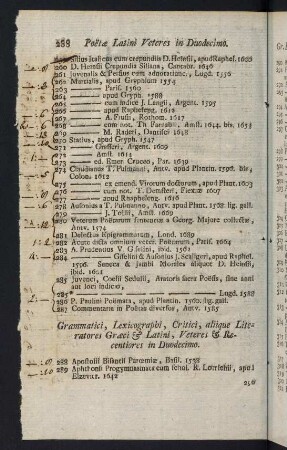 288 Poëtæ Latini Veteres in Duodecimo.
Silius Italicus cum crepundiis D. Heinsii, apud Raphel. 1600
260 D. Heinsii Crepundia Siliana, Cantabr. 1646
261 Juvenalis & Persius cum adnotationc. Lugd. 1556
262 Martialis, apud Gryphium 1554
263 Paris. 1560
264 apud Gryph. 1586
265 cum indice J. Langii, Argent. 1595
266 apud Rapheleng. 1616
267 A. Frusii, Rothom. 1617
268 cum not. Th. Farnabii, Amst. 1644. bis, 1653
M. Raderi, 1648
270 Statius, apud Gryph. 1547
271 Gruteri, Argent. 1609
272 Amst. 1612
273 ed. Emer. Cruceo, Par. 1639
274 Claudianus T. Pulmanni, Antv. apud Plantin. 1596. bis,
Colon. 1612
275 ex emend. Virorum doctorum, apud Plant. 1607
276 cum not. T. Dempsteri, Flexiæ 1607
277 apud Raspheleng. 1616
278 Ausonius T. Pulmanni, Antv. apud Plant. 1568. lig. gall.
279 J. Tollii, Amst. 1669
280 Veterum Poëtarum sententiæ a Georg. Majore collectæ,
Antv. 1574
281 Delectus Epigrammatum, Lond. 1689
282 Acute dicta omnium veter. Poëtarum, Paris. 1664
283 A. Prudentius V. Giselini, ibid. 1561
284 Giselini & Ausonius J. Scaligeri, apud Raphel.
1596. Senecæ & Iambi Morales aliquot D. Heinsii,
ibid. 1601
285 Juvenci, Coelii Sedulii, Aratoris sacra Poësis, sine anni
aut loci indicio,
285* Lugd. 1588
286 P. Paulini Poëmata, apud Plantin. 1560. lig. gall.
287 Commentarii in Poëtas diversos, Antv. 1565
Grammatici, Lexicographi, Critici, aliique Lite-
ratores Græci & Latini, Veteres & Re-
centiores in Duodecimo.
288 Apostolii Bisantii Parœmiæ, Basil. 1538
289 Aphthonii Progymnasmata cum schol. R. Lorichii, apud
Elzevir. 1642